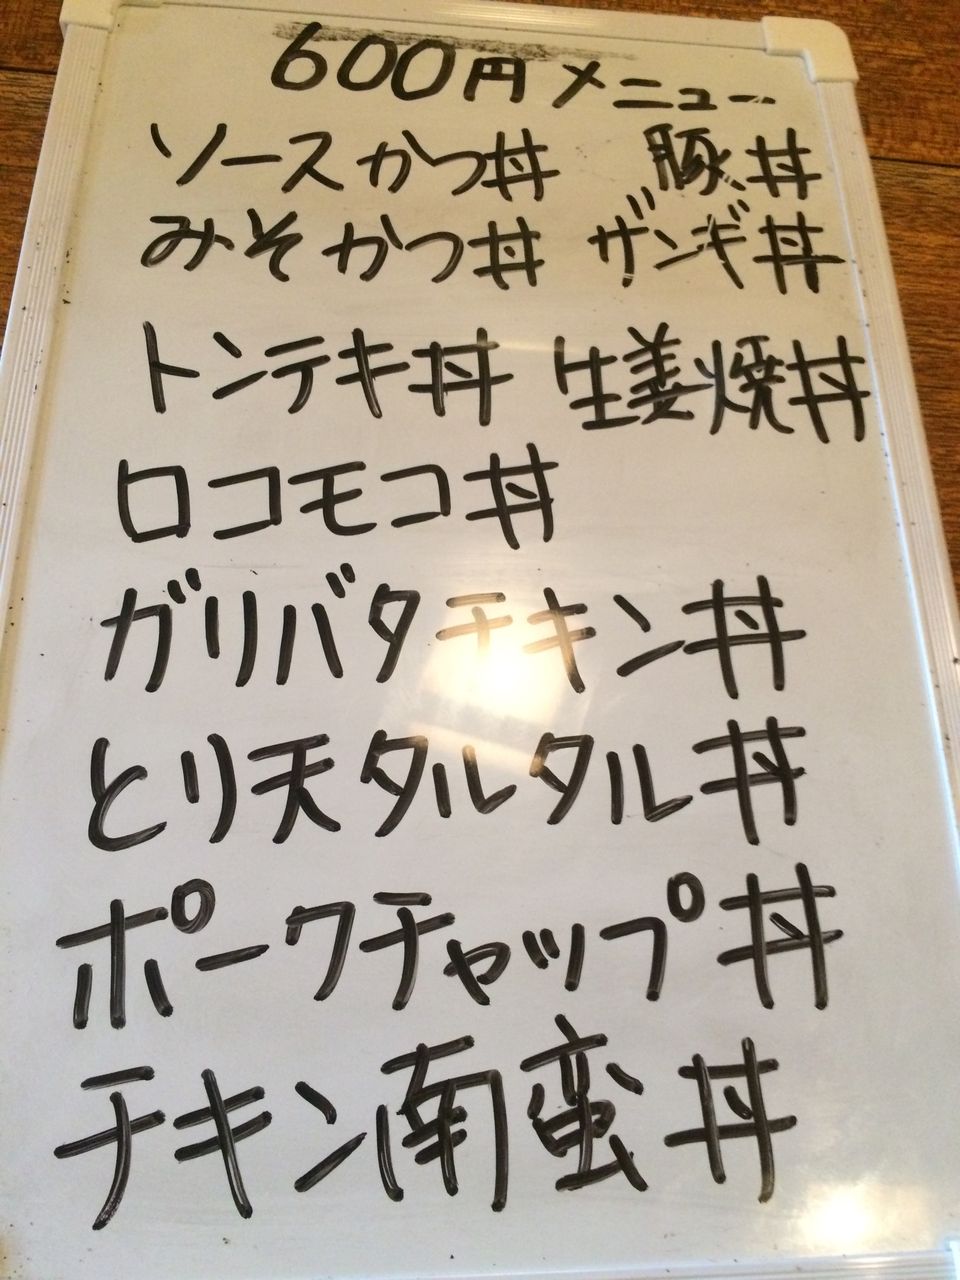 600円メニュー
ソースかつ丼 豚丼
みそかつ丼 ザンギ丼
トンテキ丼 生姜焼丼
ロコモコ丼
ガリバタチキン丼
とり天タルタル丼
ポークチャップ丼
チキン南蛮丼